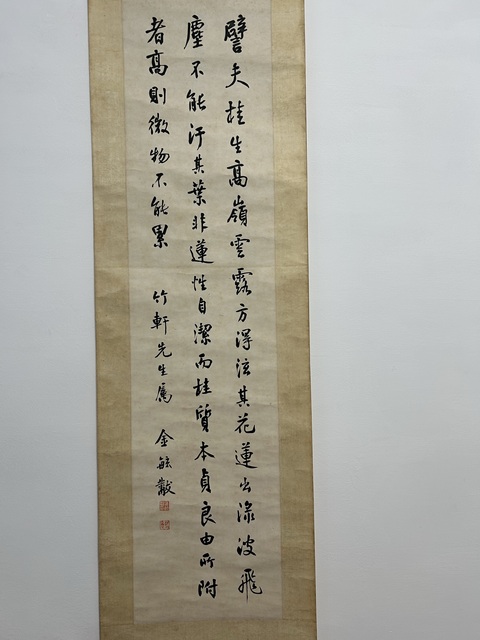 譬夫桂生高嶺雲露方得泫其花蓮出淥波飛
塵不能汙其葉非蓮性自潔而桂質本貞良由所附
者高則微物不能累
竹軒先生屬 金毓黻